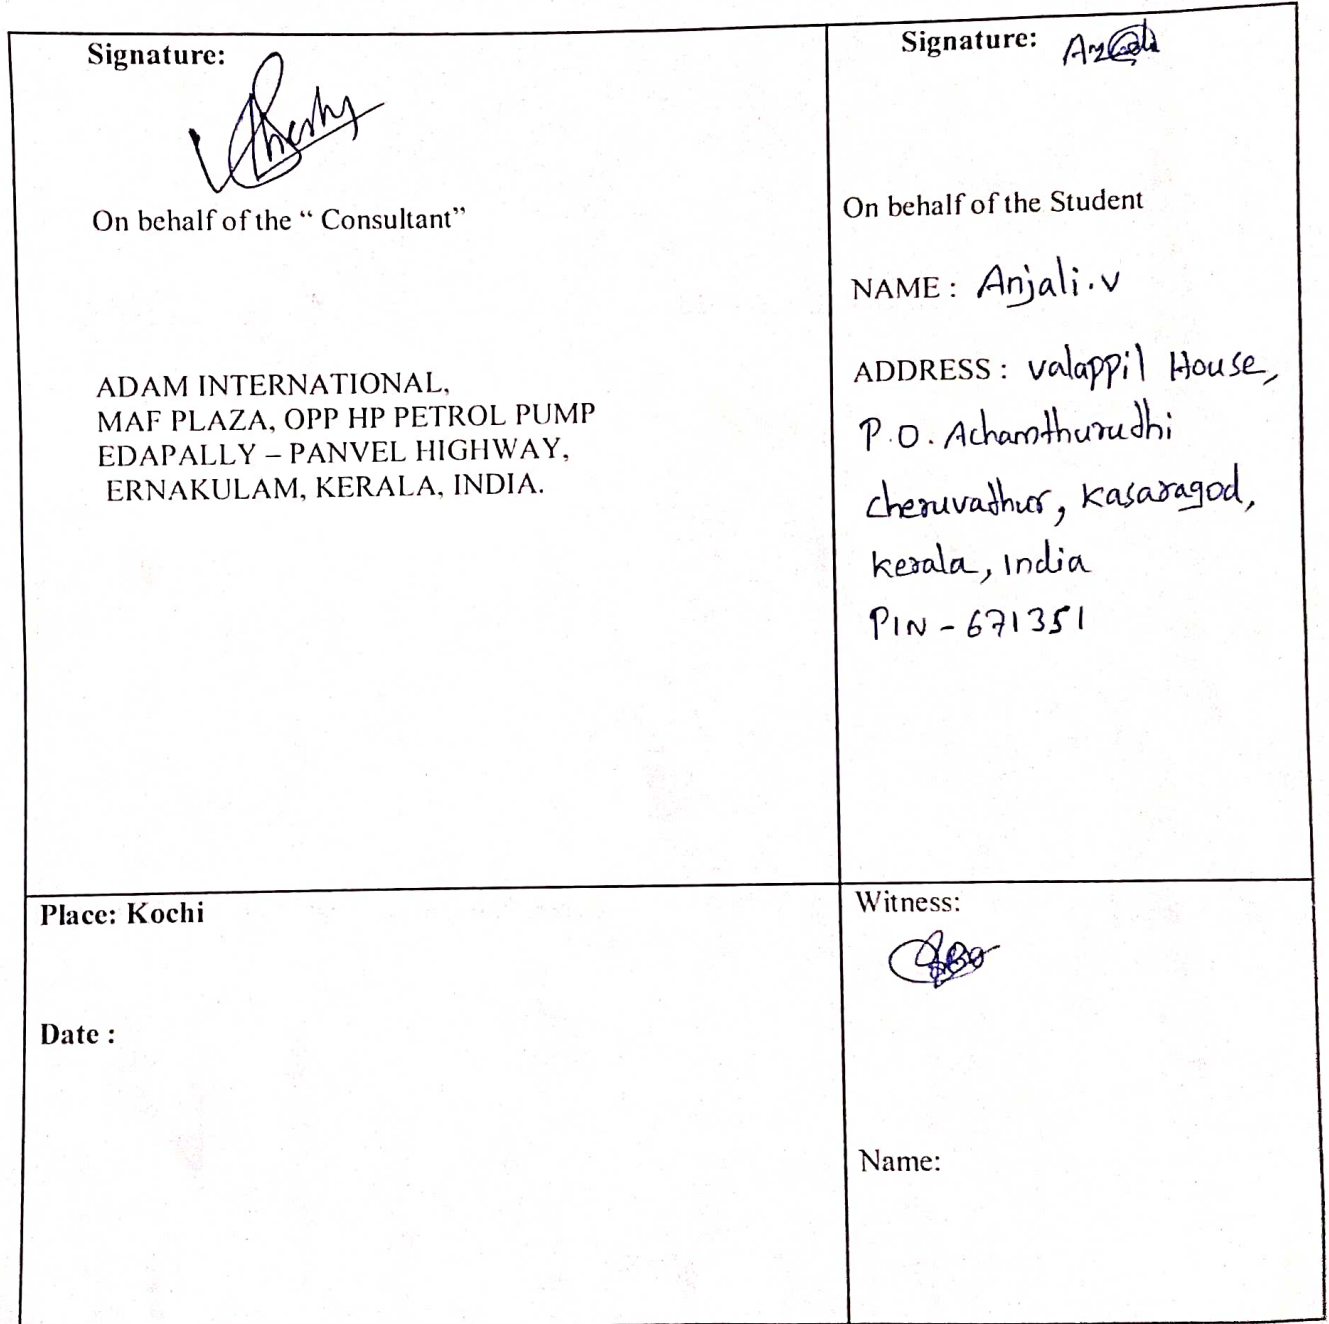 Signature:
On behalf of the “ Consultant”
ADAM INTERNATIONAL,
MAF PLAZA, OPP HP PETROL PUMP
EDAPALLY – PANVEL HIGHWAY,
ERNAKULAM, KERALA, INDIA.
Signature:
On behalf of the Student
NAME : Anjali.v
ADDRESS : valappil House,
P.O. Achamthuruthi
cheruvathur, kasaragod,
kerala, India
PIN - 671351
Place: Kochi
Date :
Witness:
Name: